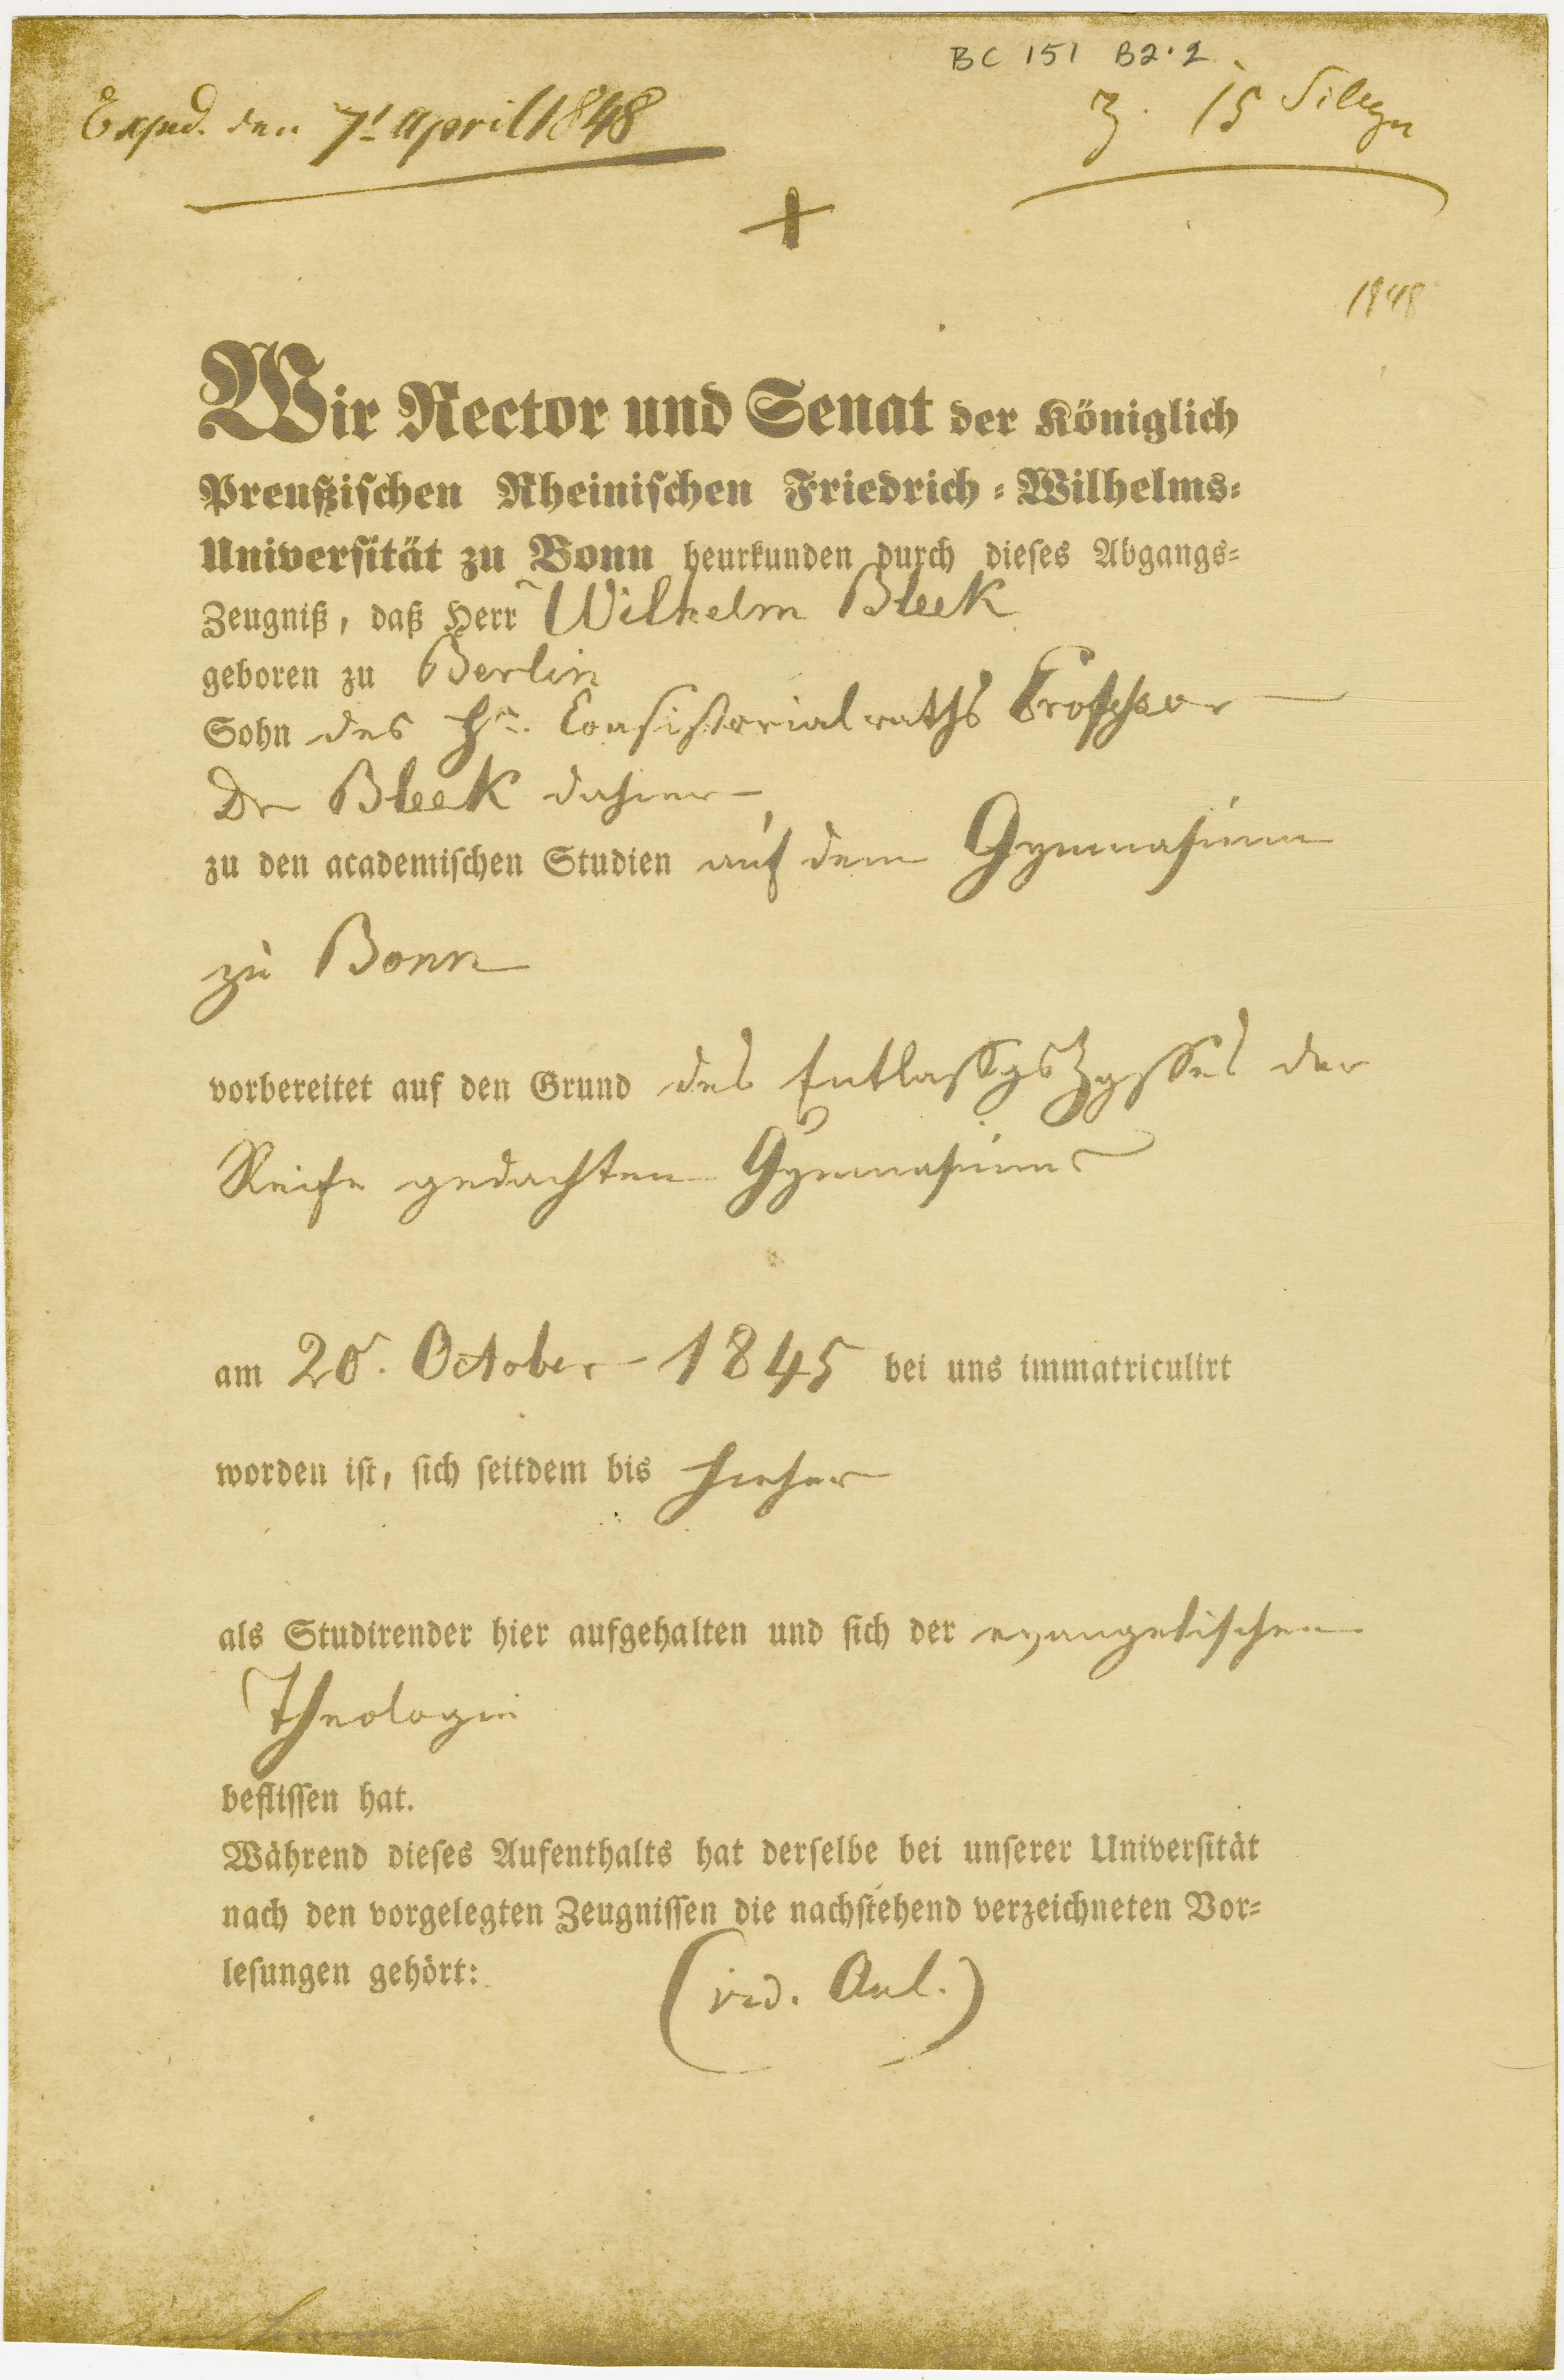 BC 151 B2.2
Exped. den 7t April 1848
3. 15 Silbgr
1848
Wir Rector und Senat der Königlich
Preußischen Rheinischen Friedrich=Wilhelms=
Universität zu Bonn beurkunden durch dieses Abgangs=
Zeugniß, daß Herr Wilhelm Bleek
geboren zu Berlin
Sohn des Hr. Consistorialraths Professor
Dr Bleek dahier
zu den academischen Studien auf dem Gymnasium
zu Bonn
vorbereitet auf den Grund des der
Reife gedachten Gymnasiums
am 20. October 1845 bei uns immatriculirt
worden ist, sich seitdem bis hieher
als Studirender hier aufgehalten und sich der evangelischen
Theologie
beflissen hat.
Während dieses Aufenthalts hat derselbe bei unserer Universität
nach den vorgelegten Zeugnissen die nachstehend verzeichneten Vor=
lesungen gehört:
(vid. Anl.)